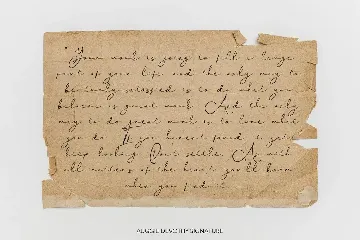 "Your work is going to fill a large
part of your life, and the only way to
be truly satisfied is to do what you
believe is great work. And the only
way to do great work is to love what
you do. If you haven't found it yet,
keep looking. Don't settle. As with
all matters of the heart, you'll know
when you find it."
SIGNATURE